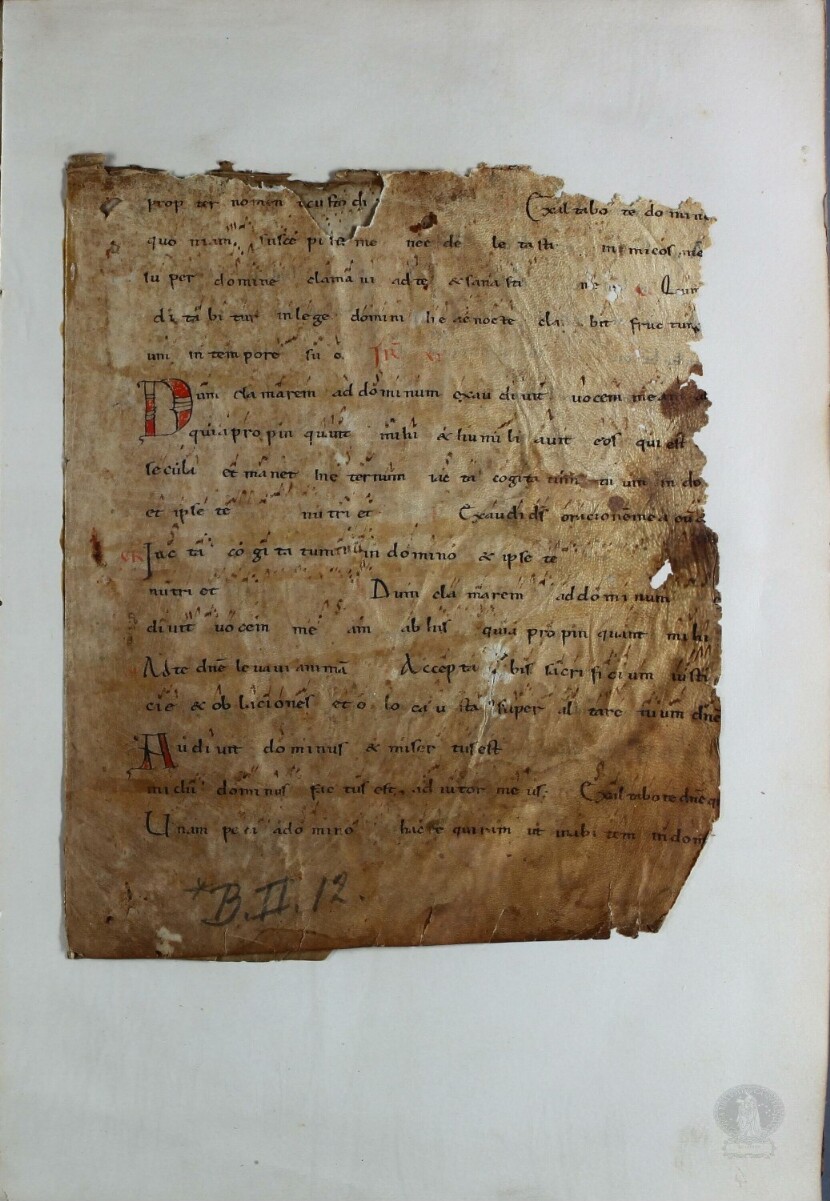 prop ter nomen custo di Exal tabo te do mine
quo niam susce pi sti me nec de le ta sti in mi cos me
su per domine clama vi ad te & sana sti me Qui
di ta bi tur in lege domini die ac nocte da bit fruc tum
um in tem pore su o
Dum cla marem ad dominum exau di uit uocem me am
quia pro pin quant mihi & humi li auit eos qui est
secula et ma net in e ternum iac ta cogita tum tu um in do
et ipse te nu tri et Exaudi ds oracionem mea
Iac ta co gi ta tum tuum in domino & ipse te
nutri et Dum cla marem ad do mi num
di uit uo cem me am ab his quia pro pin quant mihi
Ad te dne le uaui animã Accepta bis sacri fi ci um iusti
cie & ob laciones et o lo cau sta super al tare tuum dne
Au di uit dominus & miser tus est
michi dominus fac tus est ad iutor me us Exal tabo te dne q
Unam pe ci a domino hac re quiram ut inabi tem in dom
*B.II.12.